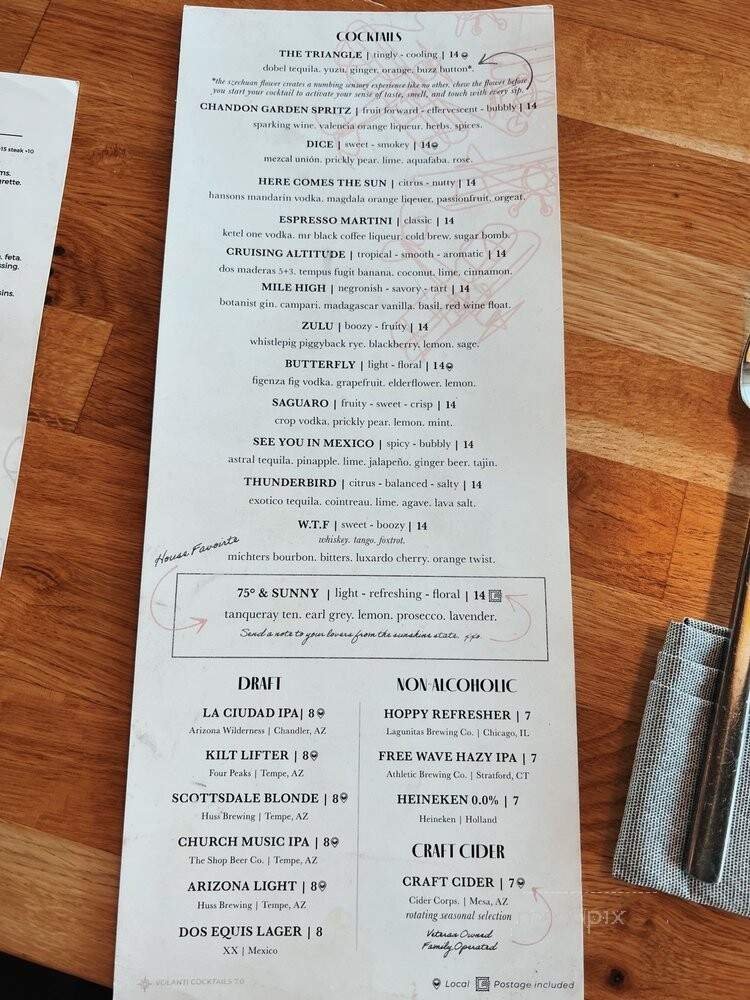 COCKTAILS
THE TRIANGLE | tingly - cooling | 14
dobel tequila. yuzu. ginger. orange. buzz button*.
*the szechuan flower creates a numbing sensory experience like no other. chew the flower before
you start your cocktail to activate your sense of taste, smell, and touch with every sip.
CHANDON GARDEN SPRITZ | fruit forward - effervescent - bubbly | 14
sparking wine. valencia orange liqueur. herbs. spices.
DICE | sweet - smokey | 14
mezcal unión. prickly pear. lime. aquafaba. rose.
HERE COMES THE SUN | citrus - nutty | 14
hansons mandarin vodka. magdala orange liqeuer. passionfruit. orgeat.
ESPRESSO MARTINI | classic | 14
ketel one vodka. mr black coffee liqueur. cold brew. sugar bomb.
CRUISING ALTITUDE | tropical - smooth - aromatic | 14
dos maderas 5+3. tempus fugit banana. coconut. lime. cinnamon.
MILE HIGH | negronish - savory - tart | 14
botanist gin. campari. madagascar vanilla. basil. red wine float.
ZULU | boozy - fruity | 14
whistlepig piggyback rye. blackberry. lemon. sage.
BUTTERFLY | light - floral | 14
figenza fig vodka. grapefruit. elderflower. lemon.
SAGUARO | fruity - sweet - crisp | 14
crop vodka. prickly pear. lemon. mint.
SEE YOU IN MEXICO | spicy - bubbly | 14
astral tequila. pinapple. lime. jalapeño. ginger beer. tajin.
THUNDERBIRD | citrus - balanced - salty | 14
exotico tequila. cointreau. lime. agave. lava salt.
W.T.F | sweet - boozy | 14
whiskey. tango. foxtrot.
michters bourbon. bitters. luxardo cherry. orange twist.
House Favoirte
75° & SUNNY | light - refreshing - floral | 14
tanqueray ten. earl grey. lemon. prosecco. lavender.
Send a note to your lovers from the sunshine state. xxo.
DRAFT
LA CIUDAD IPA| 8
Arizona Wilderness | Chandler, AZ
KILT LIFTER | 8
Four Peaks | Tempe, AZ
SCOTTSDALE BLONDE | 8
Huss Brewing | Tempe, AZ
CHURCH MUSIC IPA | 8
The Shop Beer Co. | Tempe, AZ
ARIZONA LIGHT | 8
Huss Brewing | Tempe, AZ
DOS EQUIS LAGER | 8
XX | Mexico
NON-ALCOHOLIC
HOPPY REFRESHER | 7
Lagunitas Brewing Co. | Chicago, IL
FREE WAVE HAZY IPA | 7
Athletic Brewing Co. | Stratford, CT
HEINEKEN 0.0% | 7
Heineken | Holland
CRAFT CIDER
CRAFT CIDER | 7
Cider Corps. | Mesa, AZ
rotating seasonal selection
Veteran Owned
Family Operated
VOLANTI COCKTAILS 7.0
Local Postage included
steak +10
feta.